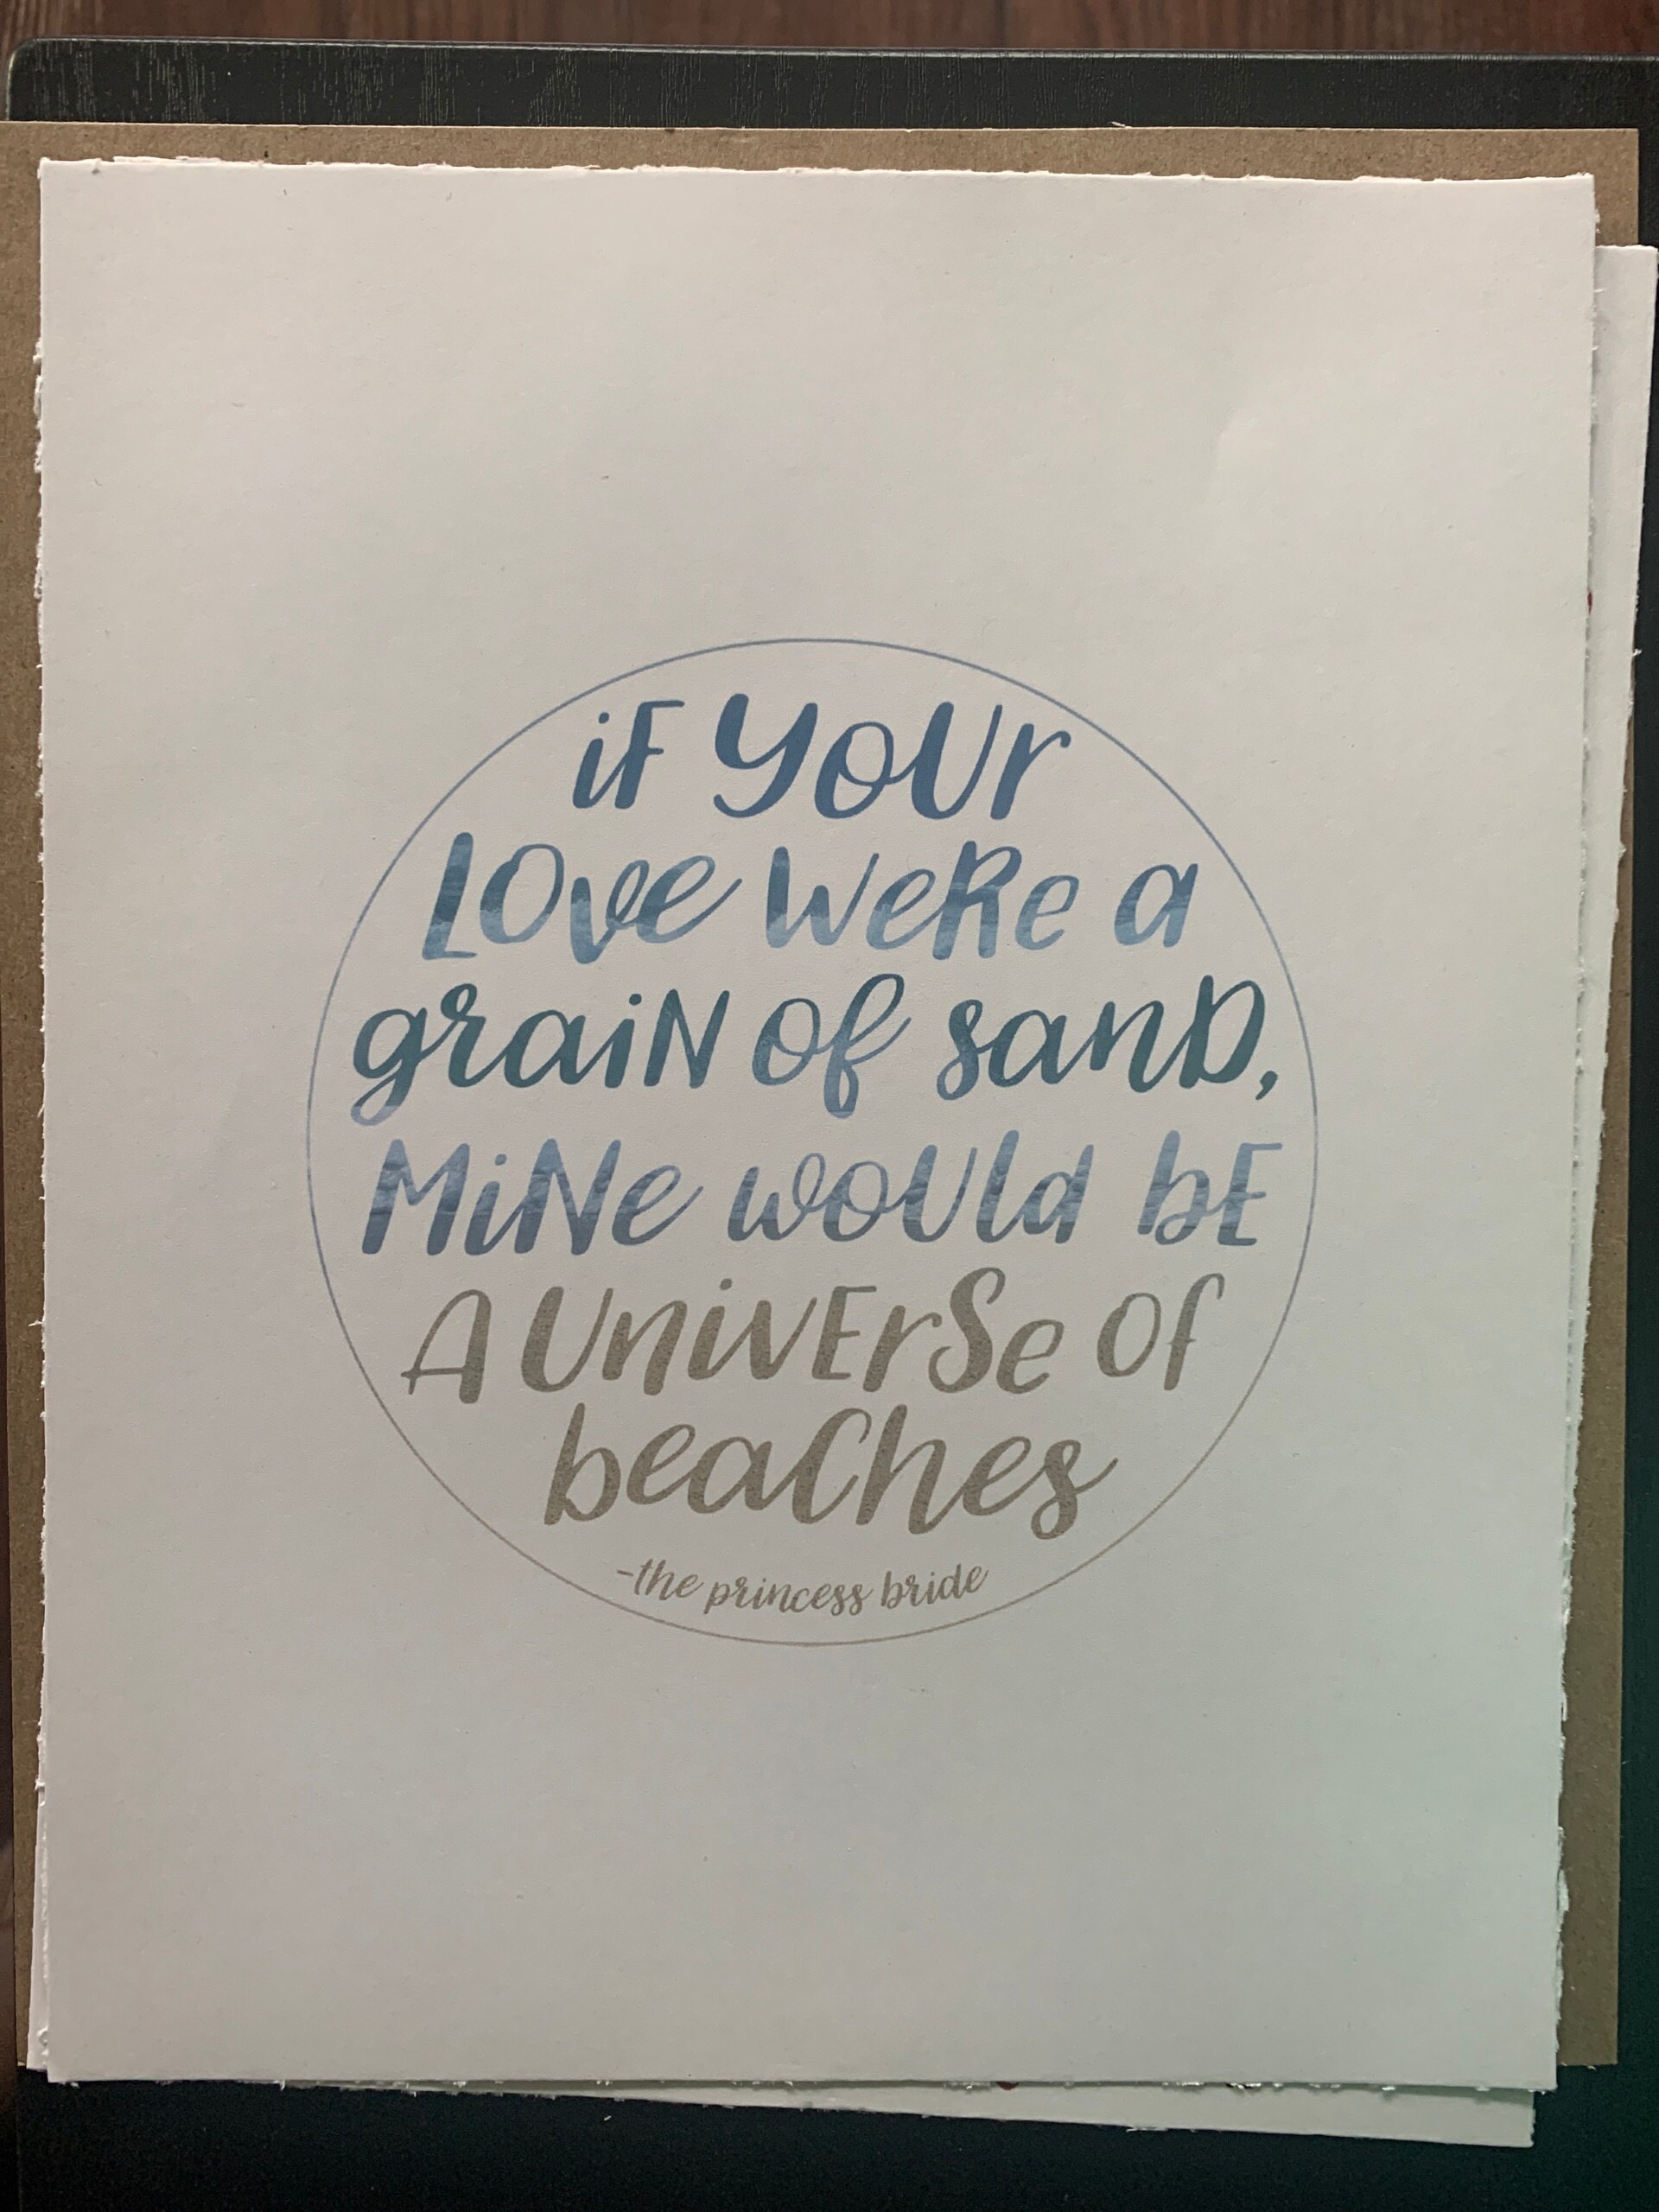 iF YOUr
LOve WeRe a
graiN of sanD,
MiNe woUld bE
A UnivErSe Of
beaChes
-the princess bride